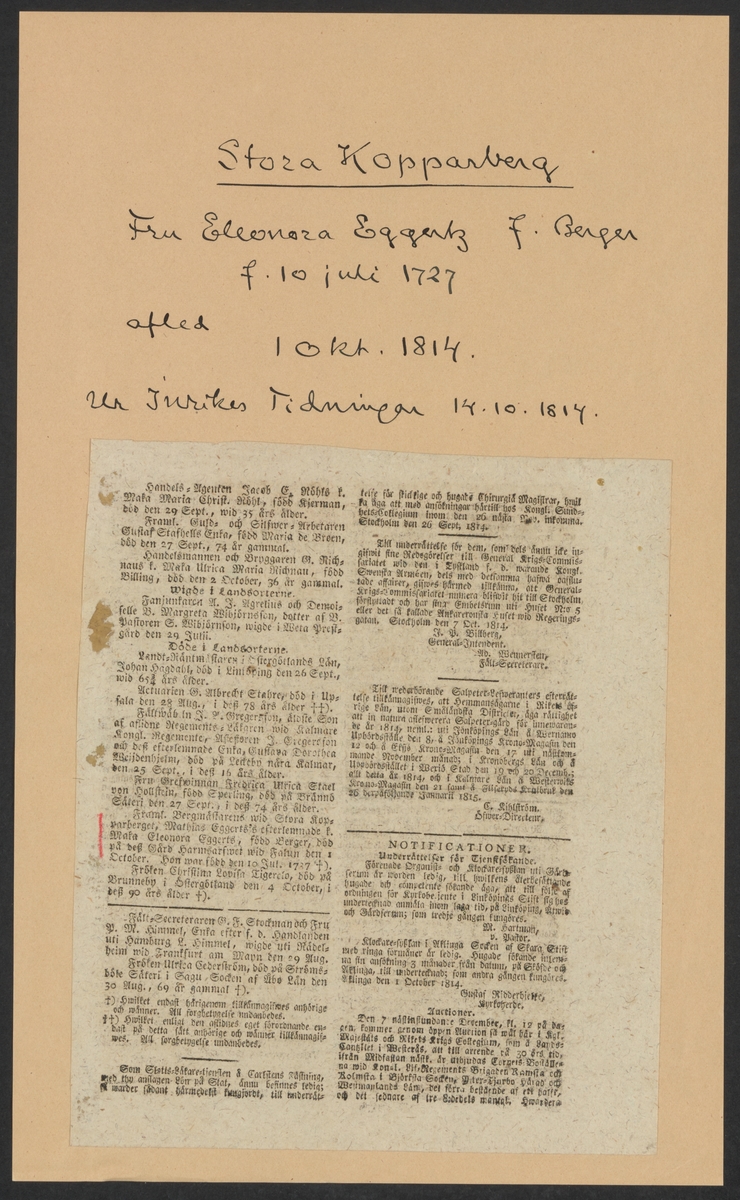 Stora Kopparberg
Fru Eleonora Eggertz f. Berger
f. 10 juli 1727
afled
1 Okt. 1814.
Ur Inrikes Tidningar 14.10.1814.
Handels-Agenten Jacob E. Röhls k.
Maka Maria Christ. Röhl, född Kjerman,
död den 29 Sept., wid 35 års ålder.
Framl. Guld- och Silfwer-Arbetaren
Gustaf Stafhells Enka, född Maria de Broen,
död den 27 Sept., 74 år gammal.
Handelsmannen och Bryggaren G. Rich-
naus k. Maka Ulrica Maria Richnau, född
Billing, död den 2 October, 36 år gammal.
Wigde i Landsorterne.
Fanjunkaren A. J. Agrelius och Demoi-
selle B. Margreta Wibjörnsson, dotter af V.
Pastoren S. Wibjörnson, wigde i Weta Prest-
gård den 29 Julii.
Döde i Landsorterne.
Landt-Räntmästaren i Östergötlands Län,
Johan Hagdahl, död i Linköping den 26 Sept.,
wid 65¾ års ålder.
Actuarien G. Albrecht Stobre, död i Up-
sala den 28 Aug., i deß 78 års ålder ††).
Fältwäb in J. P. Gregersson, äldste Son
af aflidne Regements-Läkaren wid Kalmare
Kongl. Regemente, Assessoren J. Gregersson
och deß efterlemnade Enka, Gustava Dorothea
Weidenhjelm, död på Leckeby nära Kalmar,
den 25 Sept., i deß 16 års ålder.
Fru Grefwinnan Fredrica Ulrica Stael
von Hollstein, född Sperling, död på Brännö
Säteri den 27 Sept., i deß 74 års ålder.
Framl. Bergmästarens wid Stora Kop-
parberget, Mathias Eggerts's efterlemnade k.
Maka Eleonora Eggerts, född Berger, död
på deß Gård Harmsarfwet wid Falun den 1
October. Hon war född den 10 Jul. 1727 †).
Fröken Christina Lovisa Tigerclo, död på
Brunneby i Östergötland den 4 October, i
deß 90 års ålder †).
Fält-Secreteraren G. F. Stockman och Fru
P. M. Himmel, Enka efter f. d. Handlanden
uti Hamburg L. Himmel, wigde uti Rädel-
heim wid Frankfurt am Mayn den 29 Aug.
Fröken Ulrica Cederström, död på Ströms-
böle Säteri i Sagu-Socken af Åbo Län den
30 Aug., 69 år gammal †).
†) Hwilket endast härigenom tillkännagifwes anhörige
och wänner. All sorgbetygelse undanbedes.
††) Hwilket enligt den aflidnes eget förordnande en-
dast på detta sätt anhörige och wänner tillkännagif-
wes. All sorgbetygelse undanbedes.
Som Slotts-Läkare-tjensten å Carlstens Fästning,
med thy anslagen Lön på Stat, ännu befinnes ledig;
så warder sådant härmedelst kungjordt, till underrät-
telse för skicklige och hugade Chirurgiä Magistrar, hwil-
ka äga att med ansökningar härtill hos Kongl. Sund-
hets-Collegium inom den 26 nästa Nov. inkomma.
Stockholm den 26 Sept. 1814.
Till underrättelse för dem, som dels ännu icke in-
gifwit sine Redogörelser till General Krigs-Commis-
sariatet wid den i Tyskland f. d. warande Kongl.
Swenska Armeen, dels med desamma hafwa oafslu-
tade affairer, gifwes härmed tillkänna, att General-
Krigs-Commissariatet numera blifwit hit till Stockholm
förflyttadt och har sine Embetsrum uti Huset N:o 5
eller det så kallade Ankarcronska Huset wid Regerings-
gatan. Stockholm den 7 Oct. 1814.
J. P. Billberg,
General-Intendent.
Ad. Wennersten,
Fält-Secreterare.
Till wederbörande Salpeter-Lefweranters efterrät-
telse tillkännagifwes, att Hemmansägarne i Rikets öf-
rige Län, utom Småländska Districtet, äga rättighet
att in natura aflefwerera Salpeter-gärd för innewaran-
de år 1814, neml.: uti Jönköpings Län å Wernamo
Upbördsställe den 8, å Jönköpings Krono-Magasin den
12 och å Eksjö Krono-Magasin den 17 uti nästkom-
mande November månad; i Kronobergs Län och å
Upbördsstället i Wexiö Stad den 19 och 20 Decemb.;
allt detta år 1814, och i Kalmare Län å Westerwiks
Krono-Magasin den 21 samt å Fliseryds Krutbruk den
26 derpåföljande Januarii 1815.
C. Kihlström,
Öfwer-Directeur.
NOTIFICATIONER.
Underrättelser för Tjenstsökande.
Förenade Organist- och Klockaresysslan uti Gärd-
serum är worden ledig, till hwilkens återbesättande
hugade och competente sökande äga, att till följe af
ordningen för Kyrkobetjente i Linköpings Stift sig hos
undertecknad anmäla inom laga tid, på Linköping, Atwid
och Gärdserum; som tredje gången kungöres.
M. Hartman,
v. Pastor.
Klockare-sysslan i Acklinga Socken af Skara Stift
med ringa förmåner är ledig. Hugade sökande inlem-
na sin ansökning 3 månader från datum, på Sköfde och
Acklinga, till undertecknad; som andra gången kungöres.
Acklinga den 1 October 1814.
Gustaf Ridderbielke,
Kyrkoherde.
Auctioner.
Den 7 nästinstundande December, kl. 12 på da-
gen, kommer genom öppen Auction så wäl här i Kgl.
Majestäts och Rikets Krigs Collegium, som å Lands-
Cancellit i Westerås, att till arrende på 30 års tid,
ifrån Midfastan nästk. år utbjudas Corpets Boställe-
na wid Kongl. Lif-Regements Brigaden Ramsta och
Holmsta i Björksta Socken, Yttre-Tjurbo Härad och
Westmanlands Län, det förra bestående af ett halft,
och det sednare af tre 8:dedels mantal. Hwarföre